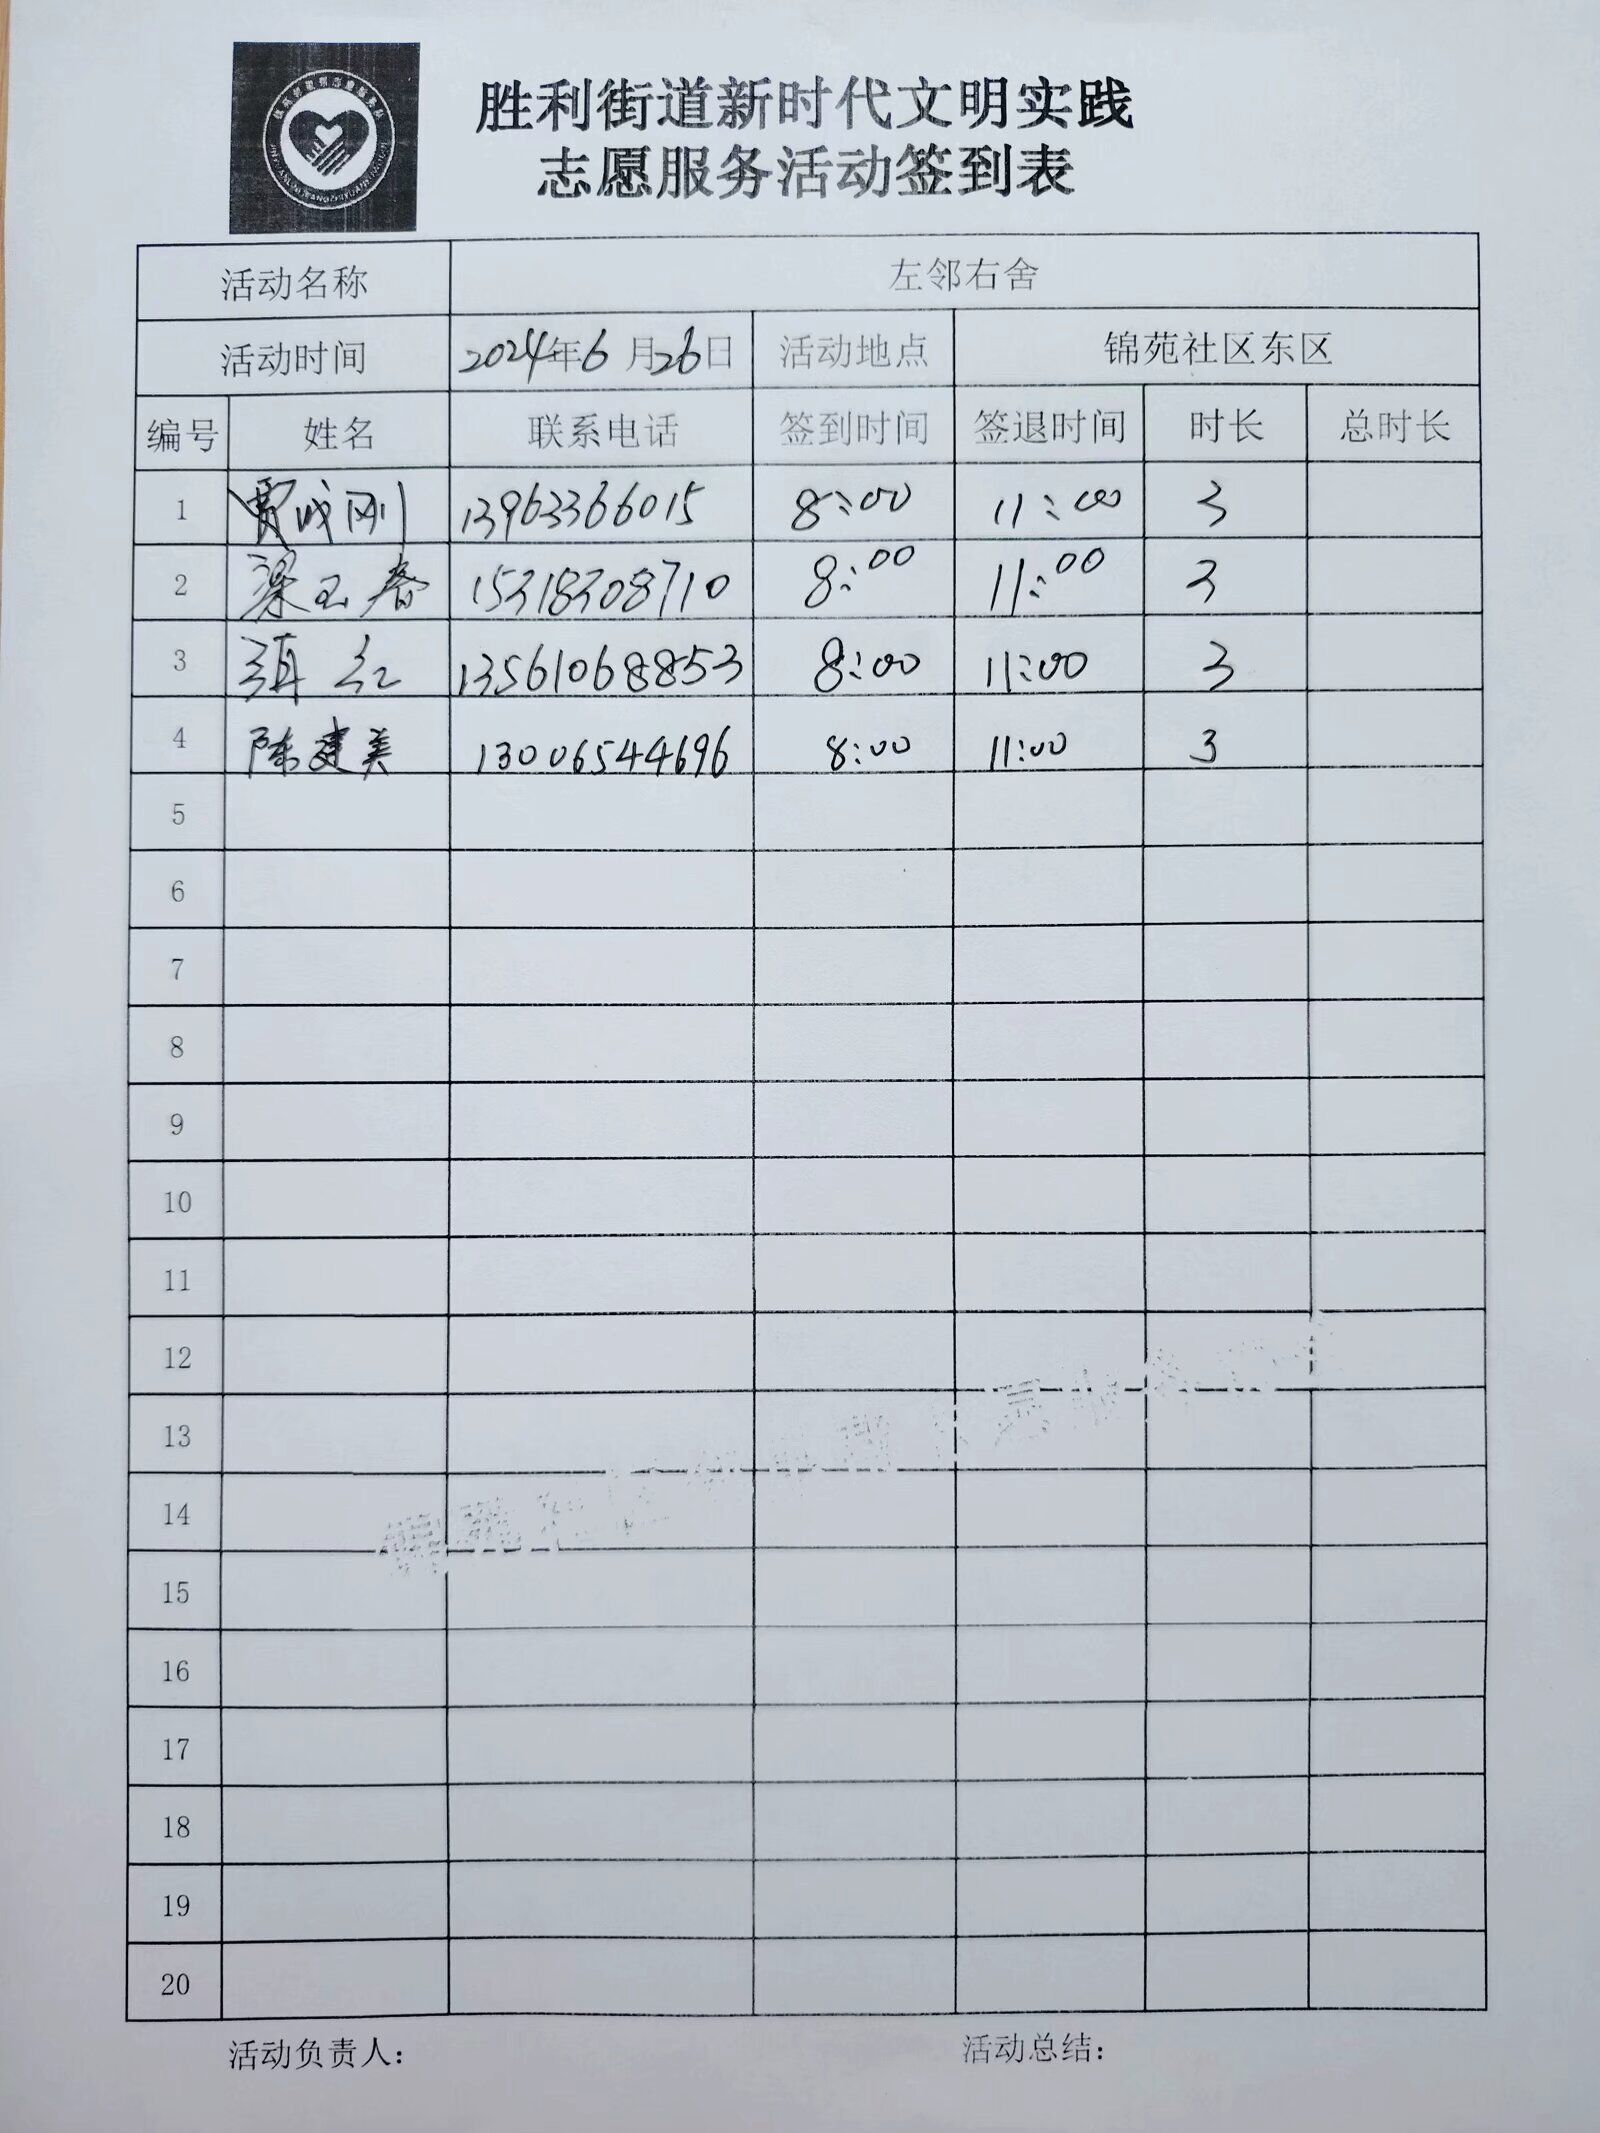 胜利街道新时代文明实践
志愿服务活动签到表
活动名称 左邻右舍
活动时间 2024年6月26日 活动地点 锦苑社区东区
编号 姓名 联系电话 签到时间 签退时间 时长 总时长
1 贾成刚 13963366015 8:00 11:00 3
2 梁玉春 15318308710 8:00 11:00 3
3 红 13561068853 8:00 11:00 3
4 陈建美 13006544696 8:00 11:00 3
5
6
7
8
9
10
11
12
13
14
15
16
17
18
19
20
活动负责人: 活动总结: